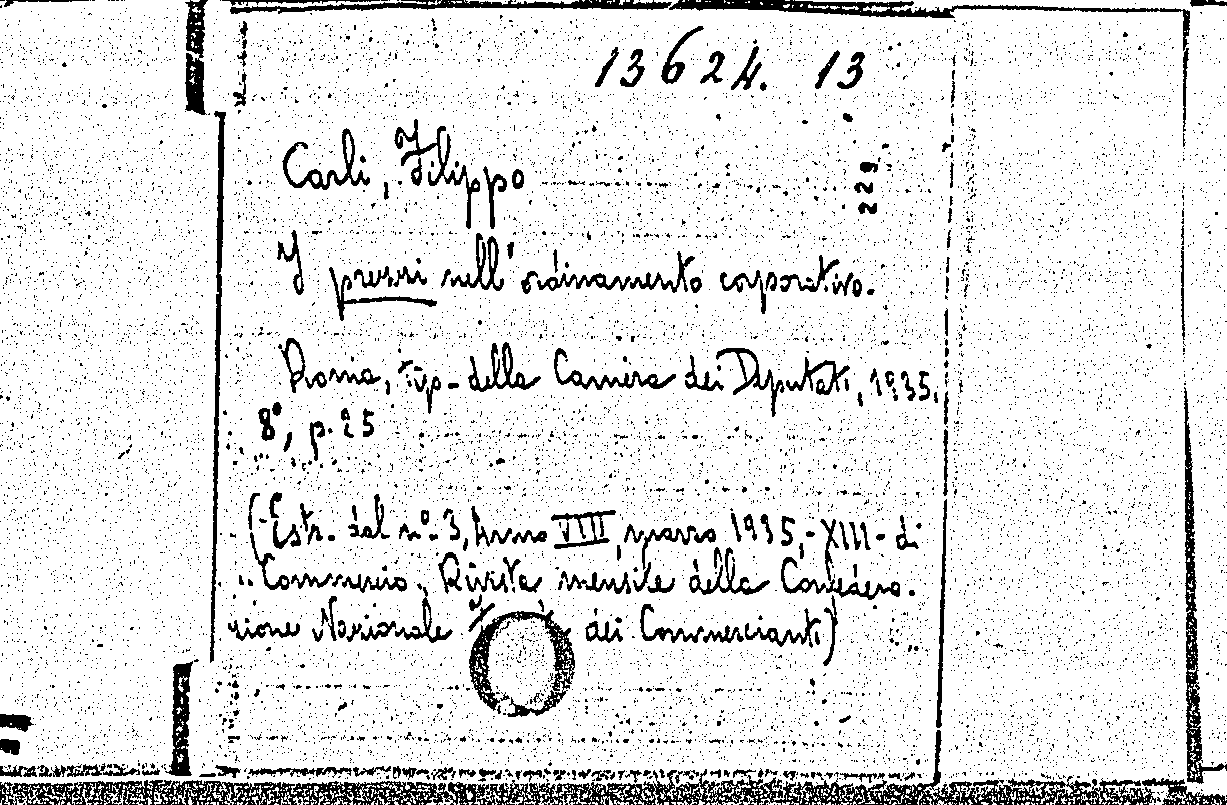 13624. 13
229
Carli, Filippo
I prezzi nell'ordinamento corporativo.
Roma, Tip. della Camera dei Deputati, 1935.
8°, p. 25
(Estr. dal n° 3, Anno VIII, marzo 1935,-XIII- di
"Commercio", Rivista mensile della Confedera-
zione Nazionale dei Commercianti)